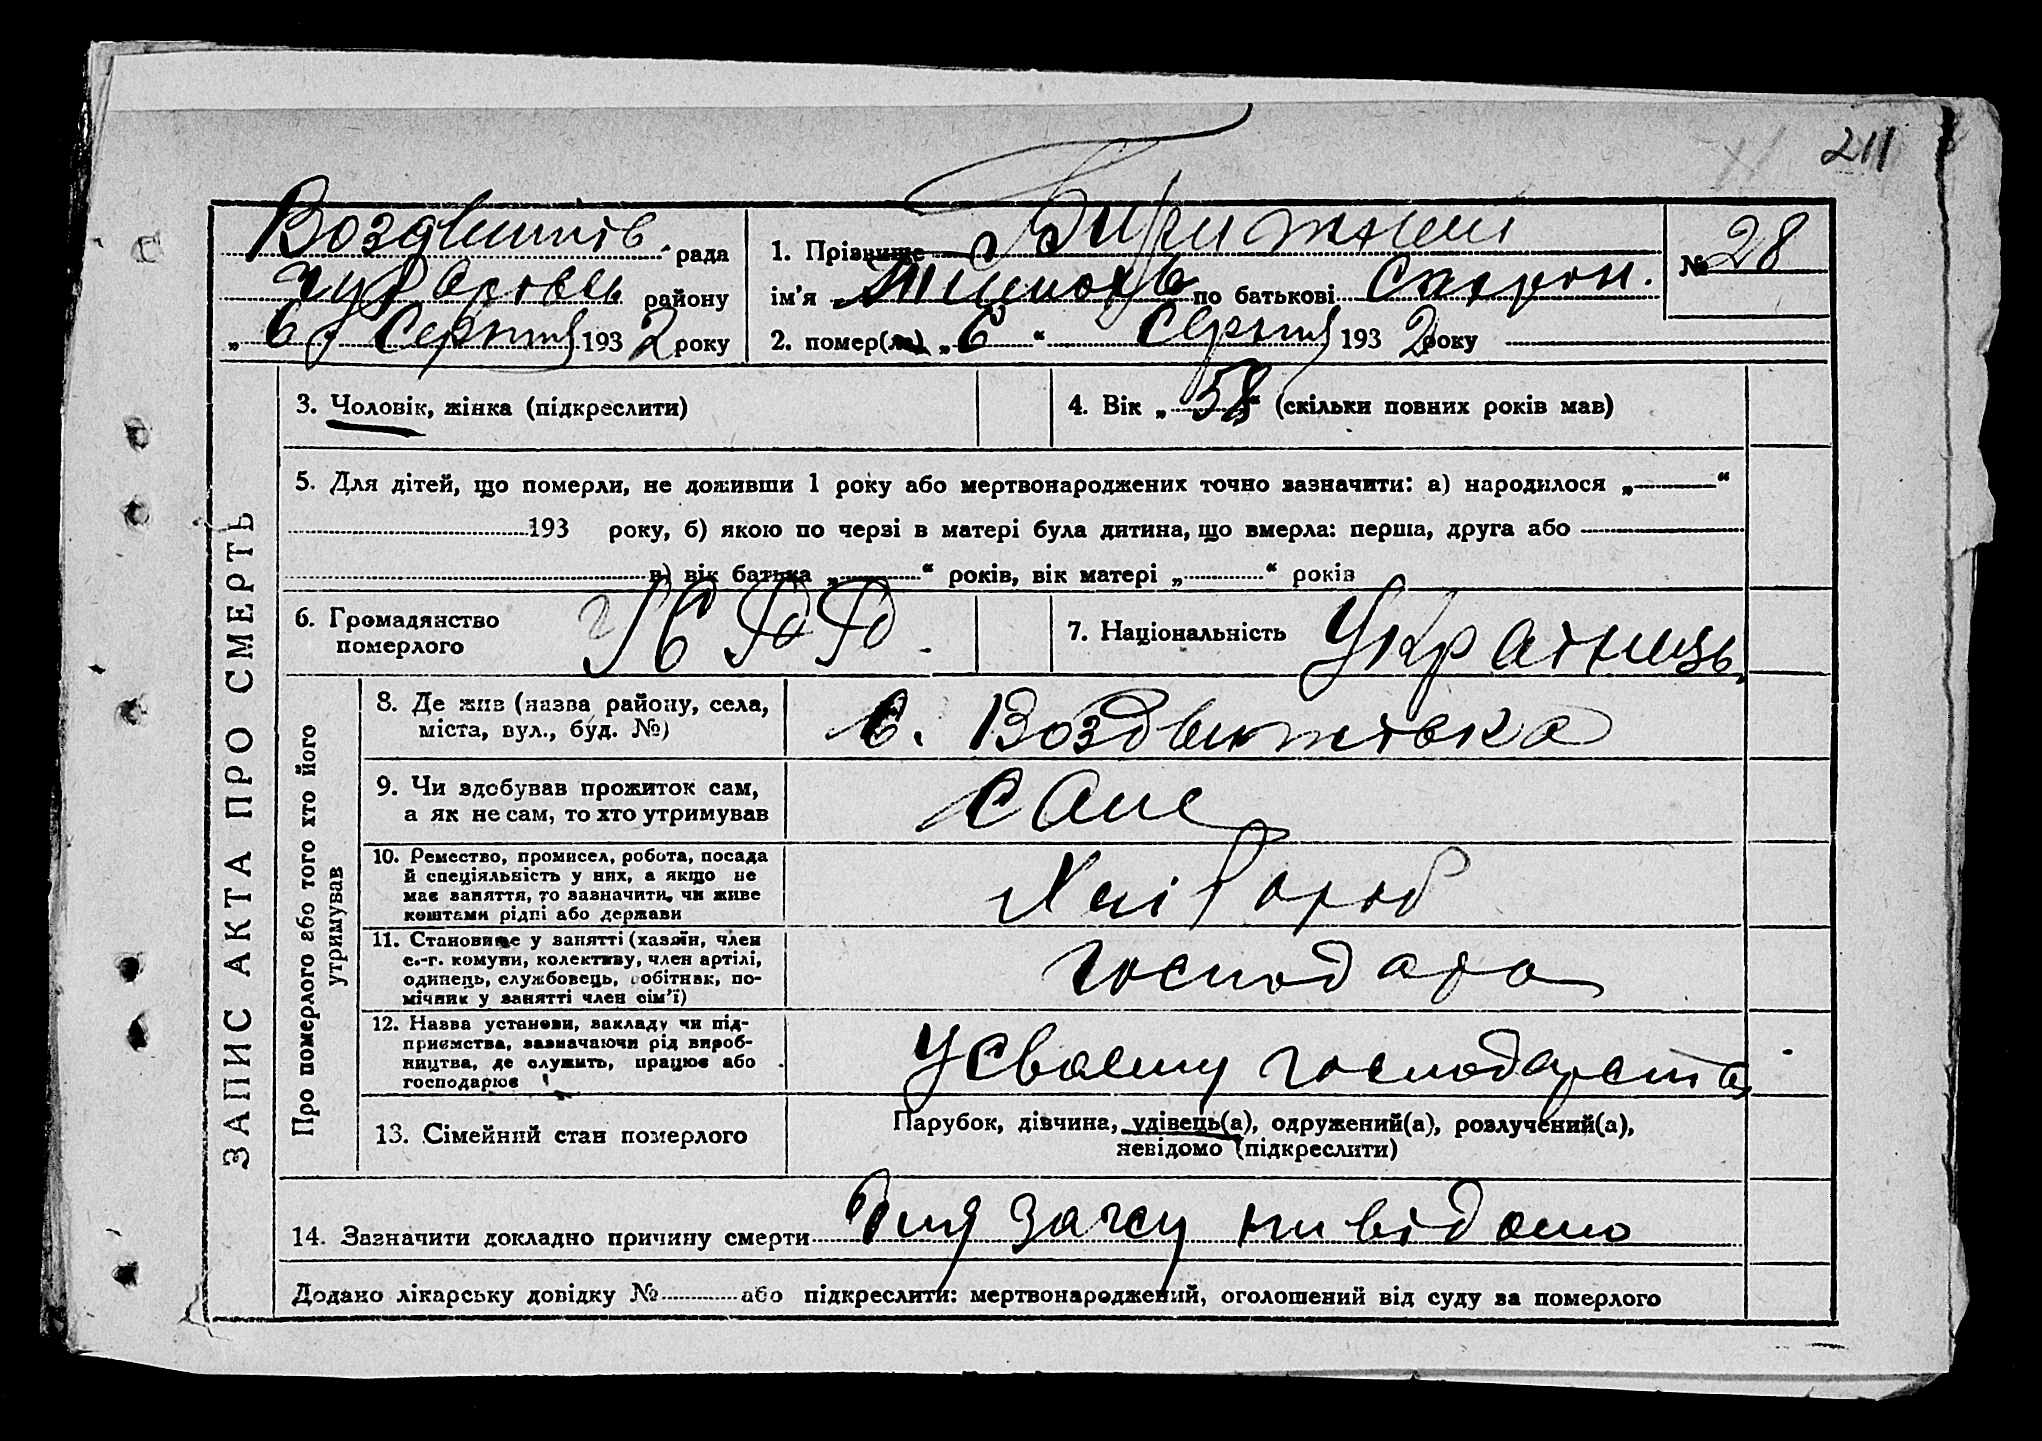 211
Воздвижів. рада
Чутівськ. району
„6„ Серпня 1932 року
1. Прізвище Бирижний
ім'я по батькові
2. помер(ла) „6“ Серпня 1932 року
№ 28
ЗАПИС АКТА ПРО СМЕРТЬ
3. Чоловік, жінка (підкреслити)
4. Вік „58“ (скільки повних років мав)
5. Для дітей, що померли, не доживши 1 року або мертвонароджених точно зазначити: а) народилося „ “
193 року, б) якою по черзі в матері була дитина, що вмерла: перша, друга або
в) вік батька „ “ років, вік матері „ “ років
6. Громадянство
померлого
УСРР.
7. Національність Українець
Про померлого або того хто його
утримував
8. Де жив (назва району, села,
міста, вул., буд. №)
С. Воздвижівка
9. Чи здобував прожиток сам,
а як не сам, то хто утримував
Саме
10. Ремество, промисел, робота, посада
й спеціяльність у них, а якщо не
має заняття, то зазначити, чи живе
коштами рідні або держави
Хлібороб
11. Становище у занятті (хазяїн, член
с.-г. комуни, колективу, член артілі,
одинець, службовець, робітник, по-
мічник у занятті член сім'ї)
Господара
12. Назва установи, закладу чи під-
приємства, зазначаючи рід вироб-
ництва, де служить, працює або
господарює
У своєму господарстві
13. Сімейний стан померлого
Парубок, дівчина, удівець(а), одружений(а), розлучений(а),
невідомо (підкреслити)
14. Зазначити докладно причину смерти Для загсу нивідомо
Додано лікарську довідку № або підкреслити: мертвонароджений, оголошений від суду за померлого